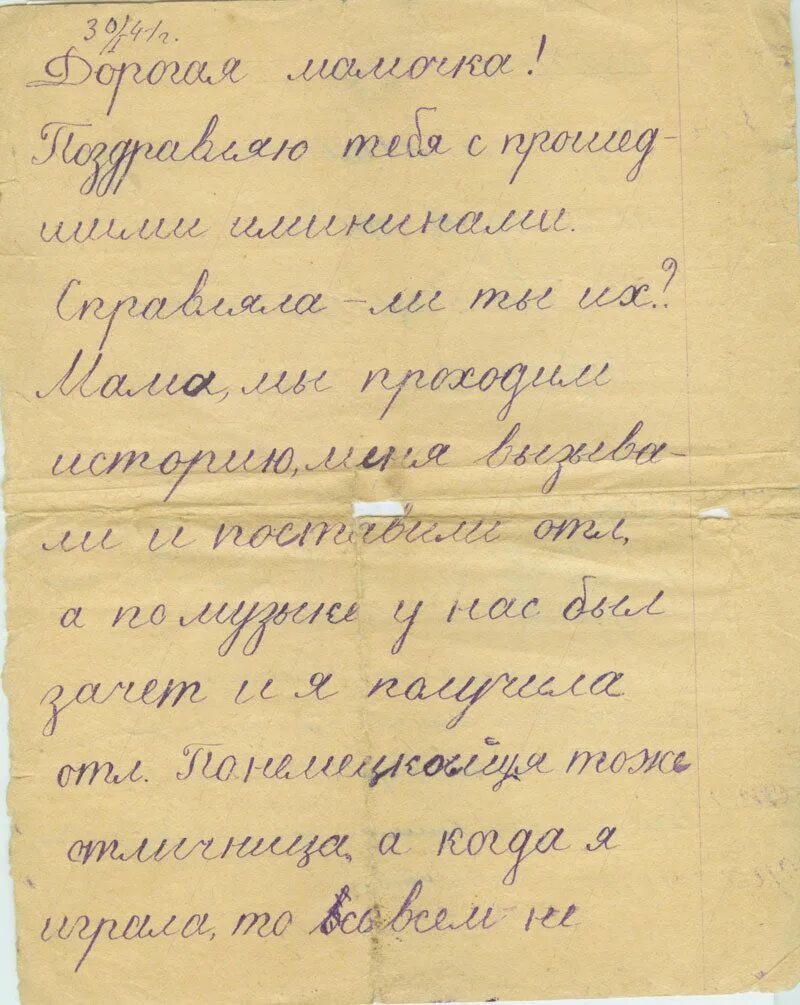 30/I 41 г.
Дорогая мамочка!
Поздравляю тебя с прошед-
шими имининами.
Справляла-ли ты их?
Мама, мы проходим
историю, меня вызыва-
ли и поставили отл,
а по музыке у нас был
зачет и я получила
отл. По немецкому я тоже
отличница, а когда я
играла, то совсем не